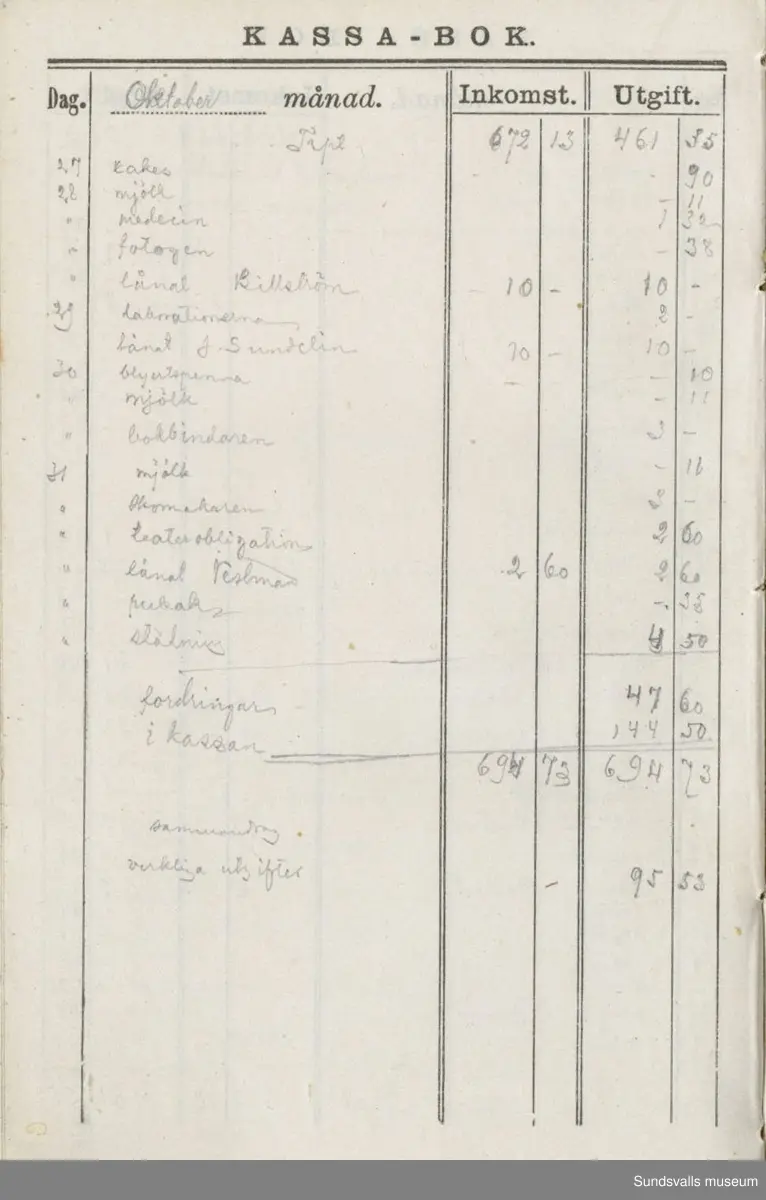 KASSA-BOK.
Dag. Oktober månad. Inkomst. Utgift.
Trpt 672 13 461 35
27 cakes - 90
28 mjölk - 11
" medecin 1 32
" fotogen - 38
" lånat Billström 10 - 10 -
29 laborationerna 2 -
lånat J. Sundelin 10 - 10 -
30 blyertspenna - - 10
" mjölk - 11
" bokbindaren 3 -
31 mjölk - 11
" skomakaren 3 -
" teaterobligation 2 60
" lånat Vestman 2 60 2 60
" - 35
" städning 4 50
fordringar 47 60
i kassan 144 50
694 73 694 73
sammandrag
verkliga utgifter - 95 53
Sundsvalls museum